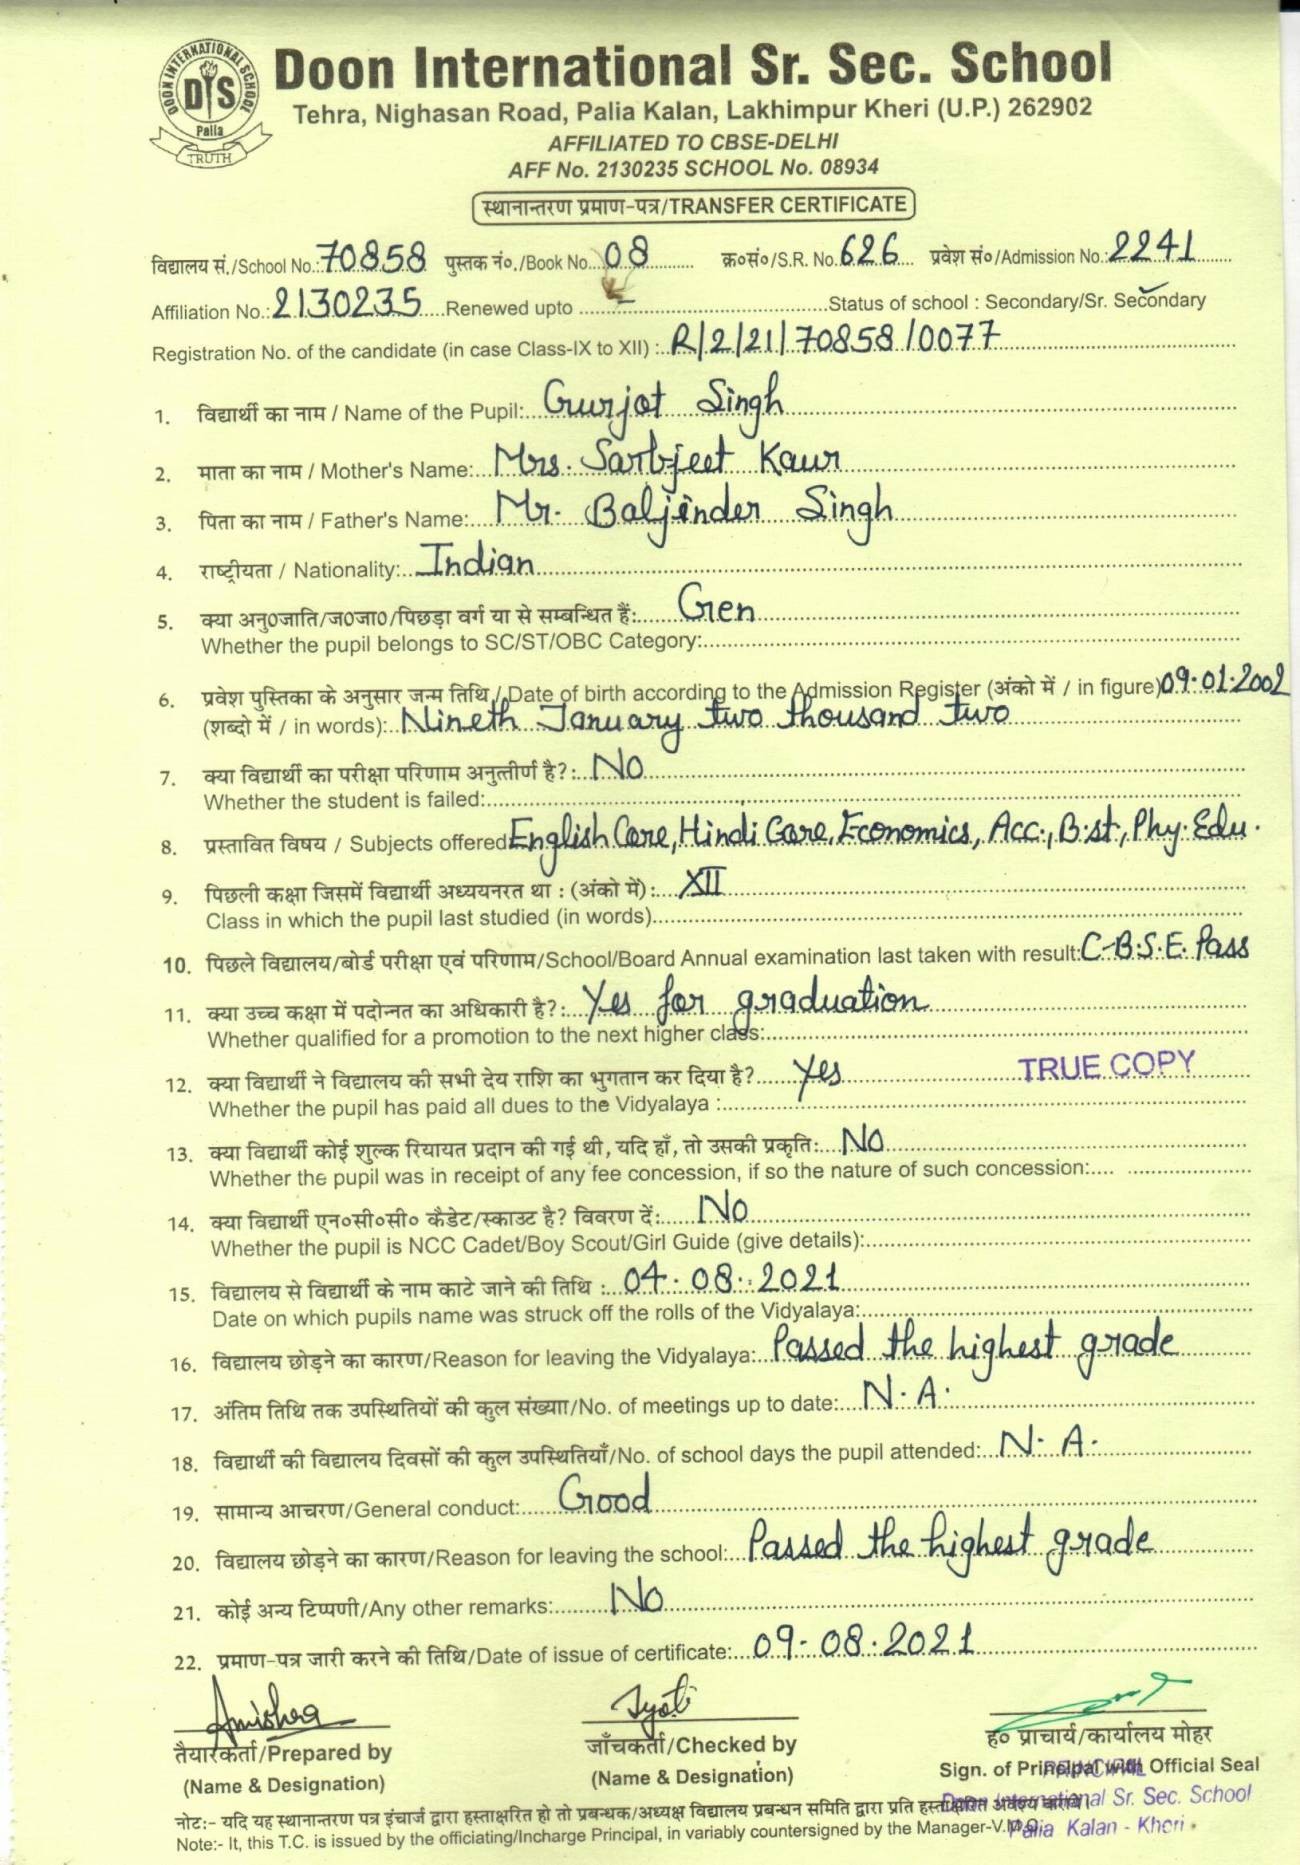 DOON INTERNATIONAL SCHOOL
DIS
Palia
TRUTH
Doon International Sr. Sec. School
Tehra, Nighasan Road, Palia Kalan, Lakhimpur Kheri (U.P.) 262902
AFFILIATED TO CBSE-DELHI
AFF No. 2130235 SCHOOL No. 08934
स्थानान्तरण प्रमाण-पत्र/TRANSFER CERTIFICATE
विद्यालय सं./School No.: 70858 पुस्तक नं०./Book No. 08 क्र०सं०/S.R. No. 626 प्रवेश सं०/Admission No.: 2241
Affiliation No.: 2130235 Renewed upto - Status of school : Secondary/Sr. Secondary
Registration No. of the candidate (in case Class-IX to XII) : R/2/21/70858/0077
1. विद्यार्थी का नाम / Name of the Pupil: Gurjot Singh
2. माता का नाम / Mother's Name: Mrs. Sarbjeet Kaur
3. पिता का नाम / Father's Name: Mr. Baljinder Singh
4. राष्ट्रीयता / Nationality: Indian
5. क्या अनु०जाति/ज०जा०/पिछड़ा वर्ग या से सम्बन्धित हैं: Gen
Whether the pupil belongs to SC/ST/OBC Category:
6. प्रवेश पुस्तिका के अनुसार जन्म तिथि / Date of birth according to the Admission Register (अंको में / in figure) 09.01.2002
(शब्दो में / in words): Nineth January two thousand two
7. क्या विद्यार्थी का परीक्षा परिणाम अनुत्तीर्ण है?: No
Whether the student is failed:
8. प्रस्तावित विषय / Subjects offered English Core, Hindi Core, Economics, Acc., B.st, Phy. Edu.
9. पिछली कक्षा जिसमें विद्यार्थी अध्ययनरत था : (अंको में): XII
Class in which the pupil last studied (in words)
10. पिछले विद्यालय/बोर्ड परीक्षा एवं परिणाम/School/Board Annual examination last taken with result: C.B.S.E. Pass
11. क्या उच्च कक्षा में पदोन्नत का अधिकारी है?: Yes for graduation
Whether qualified for a promotion to the next higher class:
12. क्या विद्यार्थी ने विद्यालय की सभी देय राशि का भुगतान कर दिया है? Yes TRUE COPY
Whether the pupil has paid all dues to the Vidyalaya :
13. क्या विद्यार्थी कोई शुल्क रियायत प्रदान की गई थी, यदि हाँ, तो उसकी प्रकृति: No
Whether the pupil was in receipt of any fee concession, if so the nature of such concession:
14. क्या विद्यार्थी एन०सी०सी० कैडेट/स्काउट है? विवरण दें: No
Whether the pupil is NCC Cadet/Boy Scout/Girl Guide (give details):
15. विद्यालय से विद्यार्थी के नाम काटे जाने की तिथि : 04.08.2021
Date on which pupils name was struck off the rolls of the Vidyalaya:
16. विद्यालय छोड़ने का कारण/Reason for leaving the Vidyalaya: Passed the highest grade
17. अंतिम तिथि तक उपस्थितियों की कुल संख्या/No. of meetings up to date: N.A.
18. विद्यार्थी की विद्यालय दिवसों की कुल उपस्थितियाँ/No. of school days the pupil attended: N.A.
19. सामान्य आचरण/General conduct: Good
20. विद्यालय छोड़ने का कारण/Reason for leaving the school: Passed the highest grade
21. कोई अन्य टिप्पणी/Any other remarks: No
22. प्रमाण-पत्र जारी करने की तिथि/Date of issue of certificate: 09-08.2021
Amishra Jyoti
तैयारकर्ता/Prepared by जाँचकर्ता/Checked by ह० प्राचार्य/कार्यालय मोहर
(Name & Designation) (Name & Designation) Sign. of Principal with Official Seal
PRINCIPAL
Doon International Sr. Sec. School
Palia Kalan - Kheri
नोटः- यदि यह स्थानान्तरण पत्र इंचार्ज द्वारा हस्ताक्षरित हो तो प्रबन्धक/अध्यक्ष विद्यालय प्रबन्धन समिति द्वारा प्रति हस्ताक्षरित अवश्य करायें।
Note:- It, this T.C. is issued by the officiating/Incharge Principal, in variably countersigned by the Manager-V.M.O.